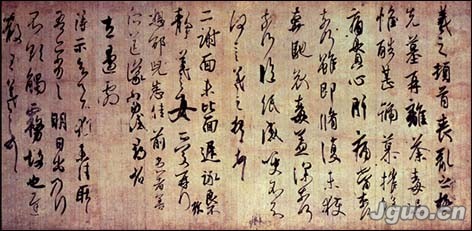 羲之頓首喪亂之極
先墓再離荼毒追
惟酷甚號慕摧絕
痛貫心肝痛當奈何
奈何雖即脩復未獲
奔馳哀毒益深奈何
奈何臨紙感哽不知
何言羲之頓首頓首
二謝面未比面遲詠良不
靜羲之女愛再拜
想邵兒悉佳前患者善
所送議當試尋省
左邊劇
得示知足下猶未佳耿耿
吾亦劣劣明日出乃行
不欲觸霧故也遲
散王羲之頓首
Jguo.cn